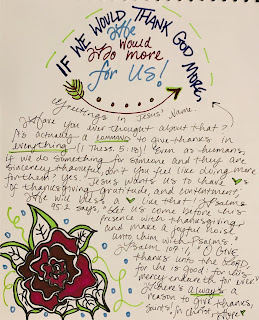 IF WE WOULD THANK GOD MORE,
He
Would
Do more
for Us!
Greetings in Jesus' Name,
Have you ever thought about that?
It's actually a command to give thanks in
everything (1 Thess. 5:18)! Even as humans,
if we do something for someone and they are
sincerely thankful, don't you feel like doing more
for them? Yes. Jesus wants us to have
of thanksgiving, gratitude, and contentment.
He will bless a like that! Psalms
95:2 says, "Let us come before his
presence with thanksgiving,
and make a joyful noise
unto him with Psalms."
Psalm 107:1, "O GIVE
thanks unto the LORD,
for he is good: for his
mercy endureth for ever."
There's always a
reason to give thanks,
Saints. In Christ, Hope